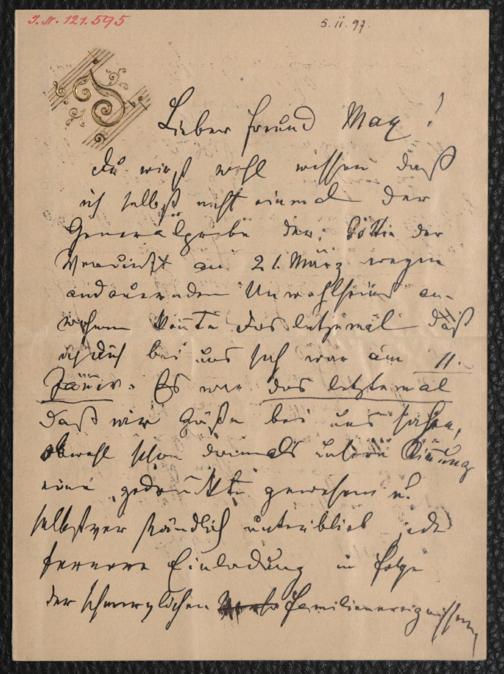 J.N. 121.595
5. II. 97.
Lieber Freund Max!
Du wirst wohl wissen daß
ich selbst nicht einmal der
Generalprobe der: Göttin der
Vernunft am 21. März wegen
andauernden Unwohlseins an-
wohnen konnte das letztemal daß
ich Dich bei uns sah war am 11.
Jänner. Es war das letztemal
daß wir Gäste bei uns sahen,
obwohl schon damals unsere Stimmung
eine gedrückte gewesen u.
selbstverständlich unterblieb jede
fernere Einladung in Folge
der schmerzlichen Familienereignisse